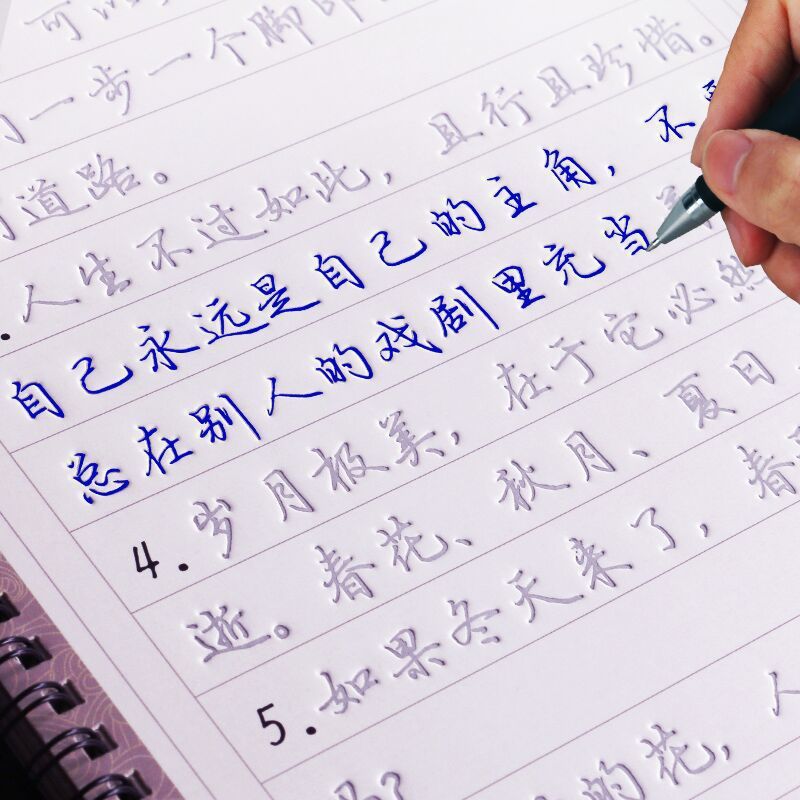 可以
一步一个脚印
道路。
人生不过如此，且行且珍惜。
自己永远是自己的主角，不
总在别人的戏剧里充当
4.岁月极美，在于它必然
逝。春花、秋月、夏日
5.如果冬天来了，春
吗?
的花，人